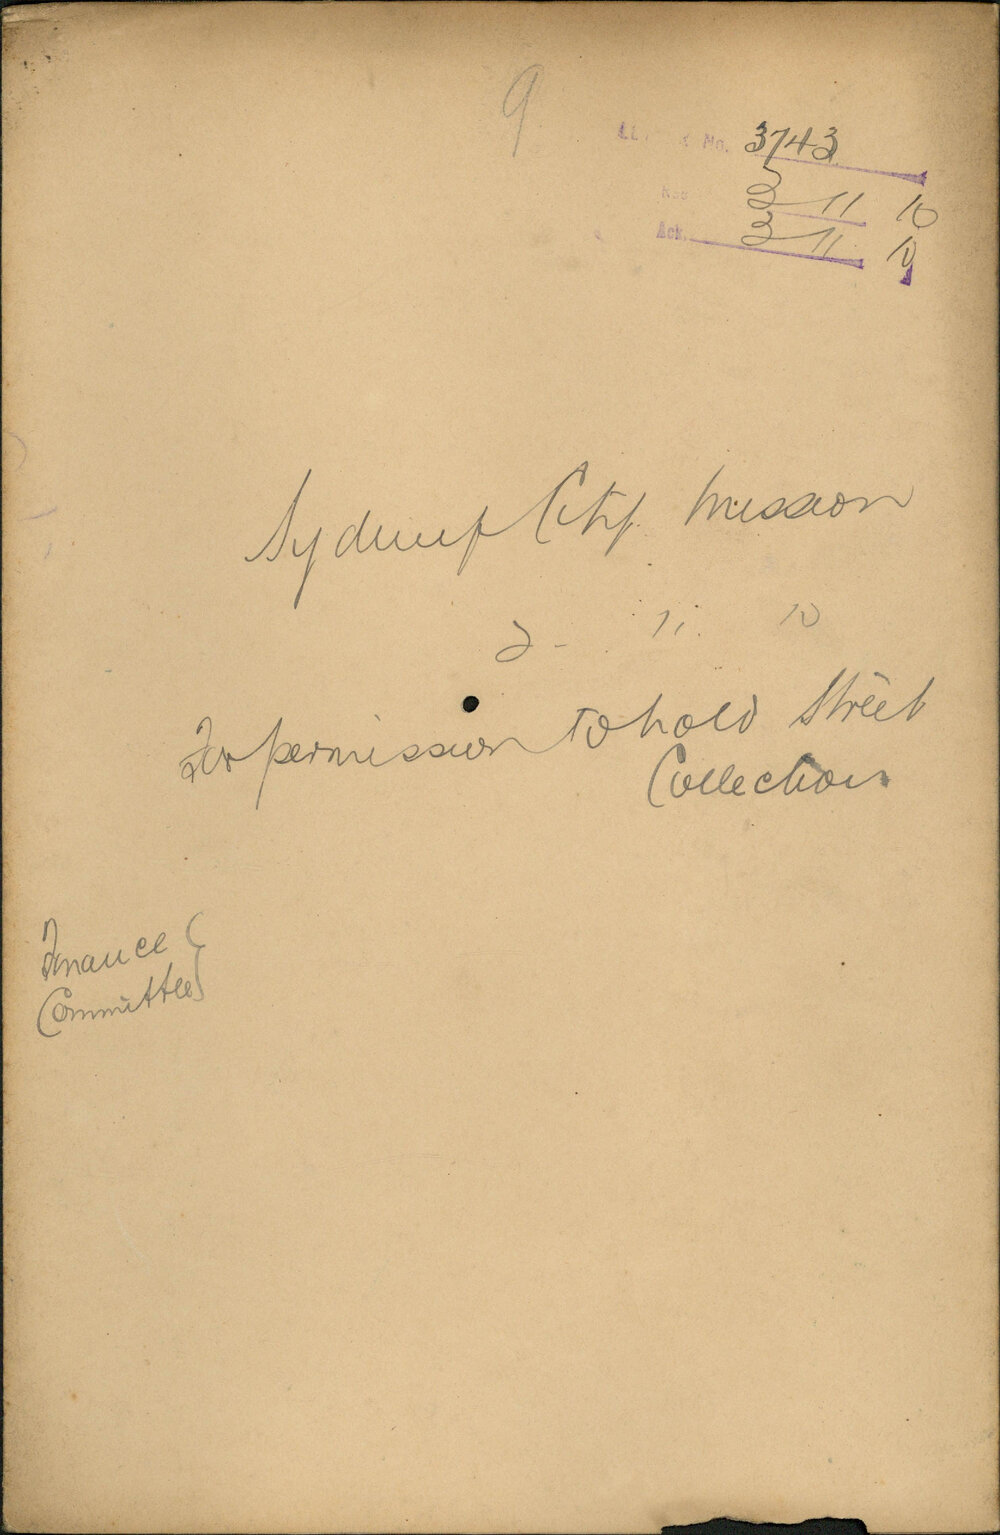 9
No. 3743
3 11 10
Ack. 3 11 10
Sydney City Mission
2 - 11. 10
For permission to hold Street
Collection
Finance
Committee